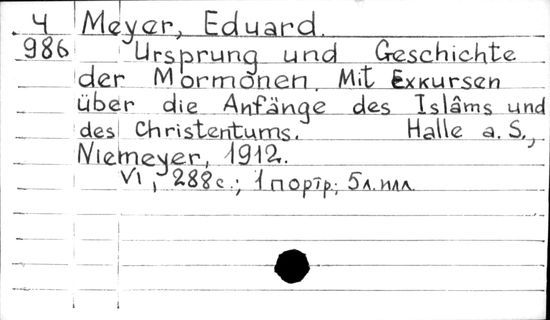 Ч Meyer, Eduard.
986 Ursprung und Geschichte
der Mormonen. Mit Exkursen
über die Anfänge des Islâms und
des Christentums. Halle a. S.,
Niemeyer, 1912.
VI, 288с.; 1 портр; 5л. илл.